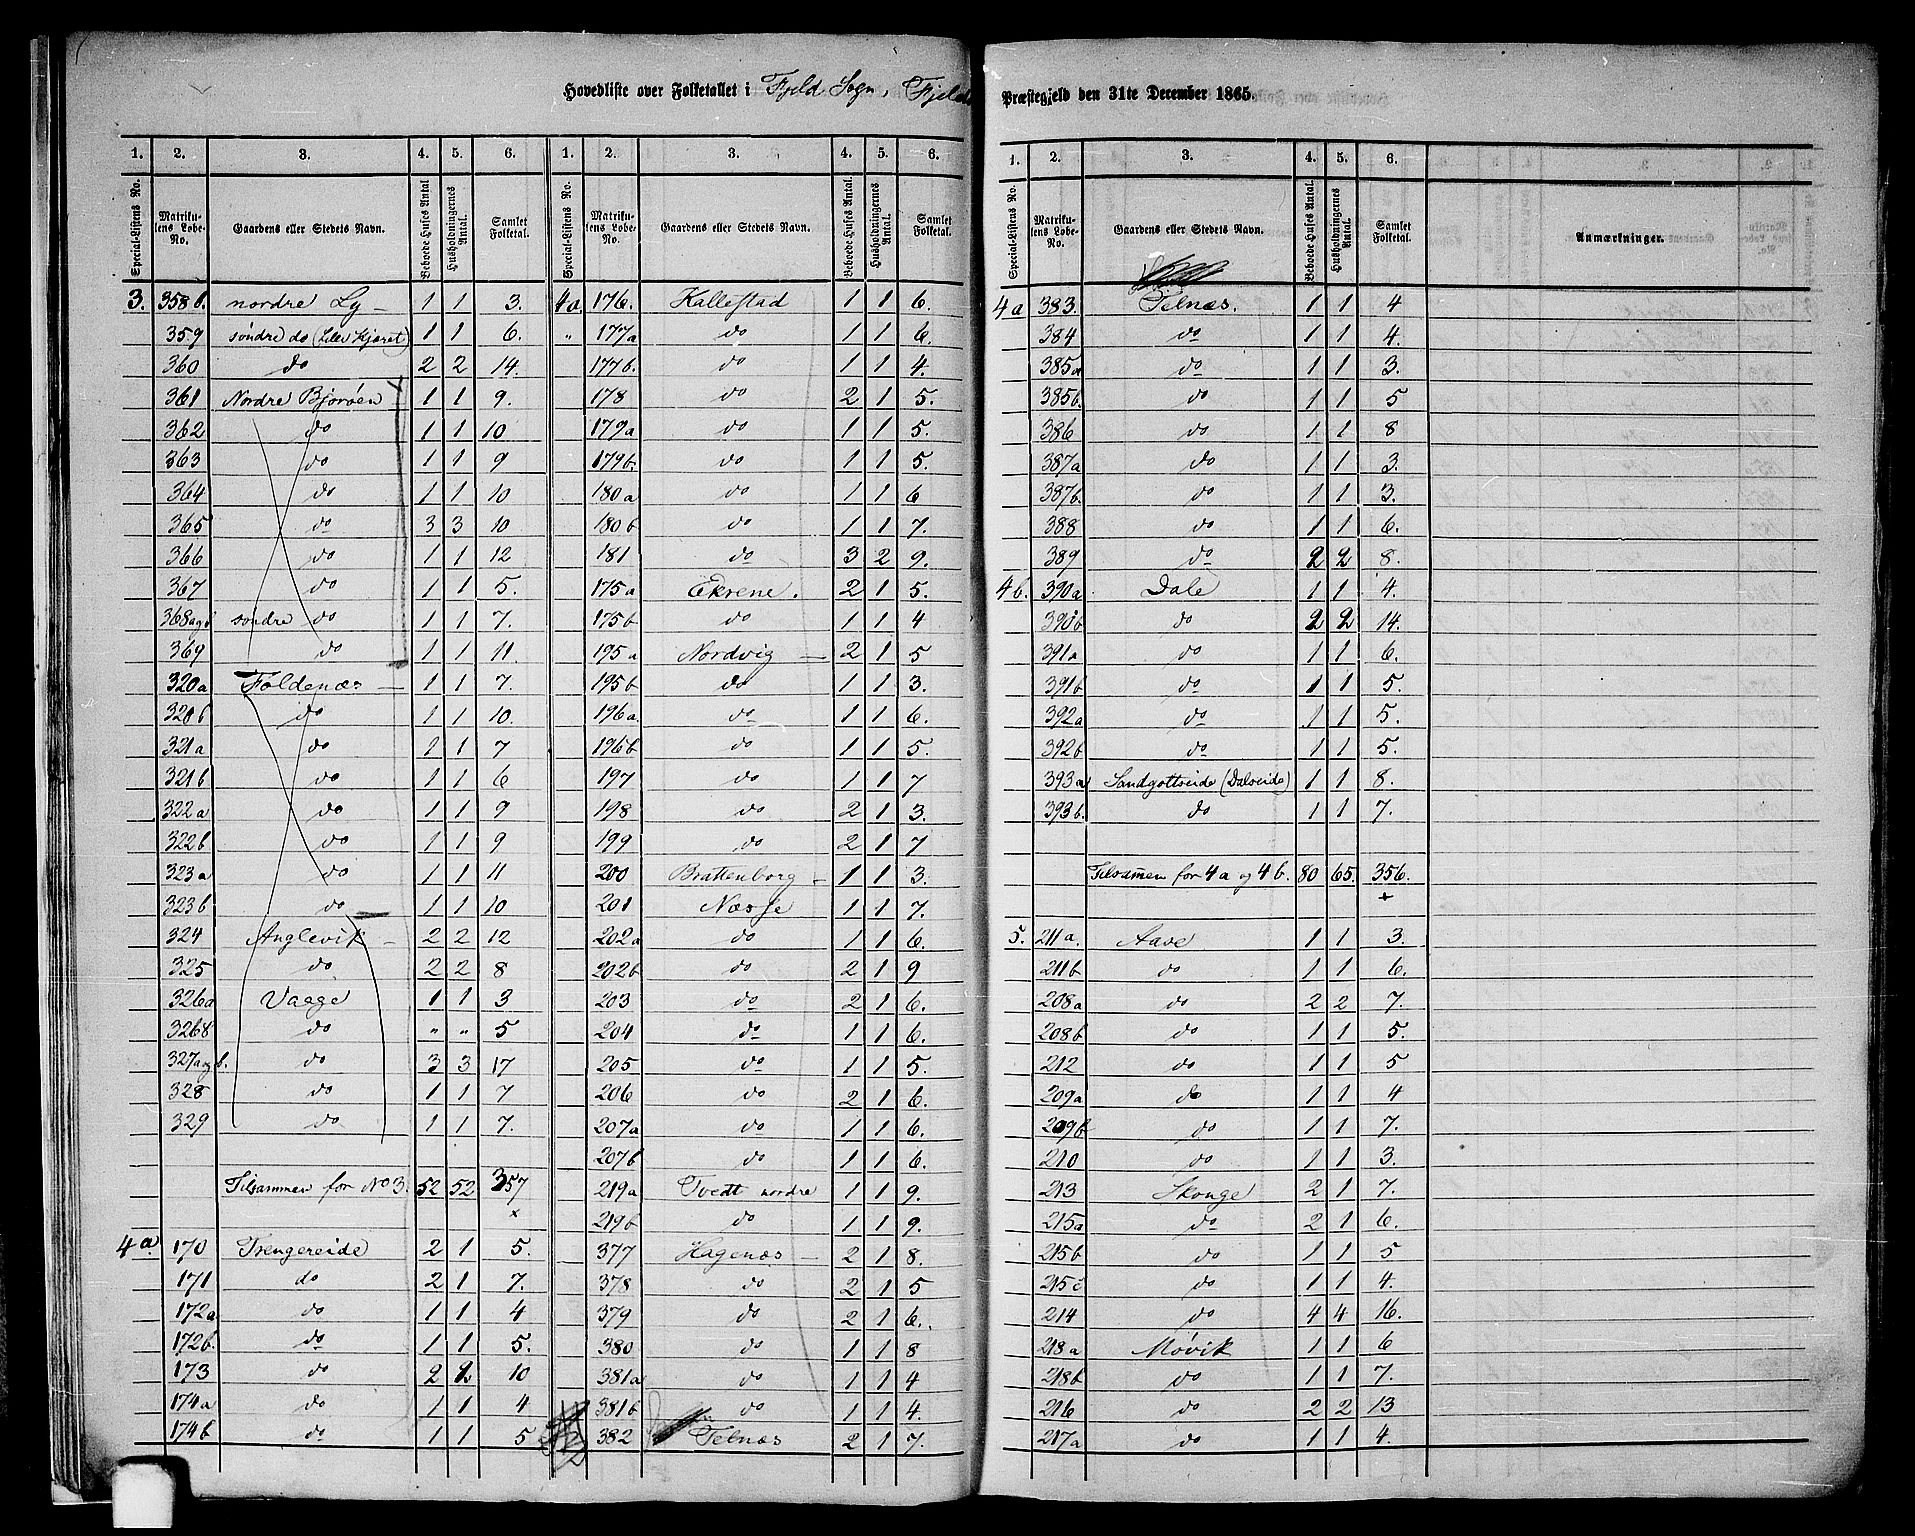 Hovedliste over Folketallet i Fjeld Sogn, Fjeld Præstegjeld den 31te December 1865.
1. 2. 3. 4. 5. 6. 1. 2. 3. 4. 5. 6.
Special-Listens No. Matrikulens Løbe-No. Gaardens eller Stedets Navn. Beboede Huses Antal Husholdningernes Antal. Samlet Folketal. Special-Listens No. Matrikulens Løbe-No. Gaardens eller Stedets Navn. Beboede Huses Antal. Husholdningernes Antal. Samlet Folketal.
3. 358b. nordre Ly 1 1 3.
359 søndre do (Lille Kjæret) 1 1 6.
360 do 2 2 14.
361 Nordre Bjorøen 1 1 9.
362 do 1 1 10
363 do 1 1 9
364 do 1 1 10
365 do 3 3 10
366 do 1 1 12
367 do 1 1 5.
368a søndre do 1 1 7.
369 do 1 1 11.
320a Foldenæs 1 1 7.
320b do 1 1 10.
321a do 1 1 7
321b do 1 1 6
322a do 1 1 9
322b do 1 1 9
323a do 1 1 11
323b do 1 1 10
324 Anglevik 2 2 12
325 do 2 2 8
326a Vaage 1 1 3
326b do " " 5
327a og b. do 3 3 17
328 do 1 1 7
329 do 1 1 7.
Tilsammen for No 3. 52 52 357
x
4a. 170 Trengereide 2 1 5.
171 do 2 1 7.
172a do 1 1 4
172b. do 1 1 5.
173 do 2 2 10
174a do 1 1 4
174b do 1 1 5
4a. 176. Kallestad 1 1 6.
" 177a do 1 1 6.
177b. do 1 1 4.
178 do 2 1 5.
179a do 1 1 5.
179b. do 1 1 5.
180a do 1 1 6
180b do 1 1 7.
181 do 3 2 9.
175a Ekrene. 2 1 5.
175b do 1 1 4
195a Nordvig 2 1 5
195b do 1 1 3.
196a do 1 1 6.
196b do 1 1 5.
197 do 1 1 7
198 do 2 1 3.
199 do 2 1 7
200 Brattenborg 1 1 3.
201 Næsje 1 1 7.
202a do 1 1 6.
202b do 2 1 9
203 do 2 1 6.
204 do 1 1 6.
205 do 1 1 5.
206 do 2 1 6.
207a do 1 1 6.
207b do 1 1 6.
219a Tvedt nordre 1 1 9.
219b do 1 1 9.
377 Hagenæs 2 1 8.
378 do 2 1 5
379 do 2 1 6.
380 do 1 1 8
381a do 1 1 4
381b do 1 1 4.
382 Telnæs 2 1 7.
1. 2. 3. 4. 5. 6.
Special-Listens No. Matrikulens Løbe-No. Gaardens eller Stedets Navn. Beboede Huses Antal. Husholdningernes Antal. Samlet Folketal. Anmærkninger.
4a 383. Telnæs. 1 1 4
384 do 1 1 4.
385a do 1 1 3.
385b. do 1 1 5
386 do 1 1 8
387a do 1 1 3.
387b. do 1 1 3.
388 do 1 1 6.
389 do 2 2 8.
4b. 390a Dale 1 1 4.
390b do 2 2 14.
391a do 1 1 6.
391b do 1 1 5.
392a do 1 1 5.
392b do 1 1 5.
393a Sandgottseide (Dalseide) 1 1 8.
393b. do 1 1 7.
Tilsammen for 4a og 4b. 80 65. 356.
+
5. 211a. Aase 1 1 3.
211b do 1 1 6.
208a do 2 2 7.
208b do 1 1 5.
212 do 1 1 5
209a do 1 1 4
209b do 1 1 7.
210 do 1 1 3.
213 Skonge 2 1 7.
215a do 2 1 6.
215b do 1 1 5
215c do 1 1 4.
214 do 4 4 16.
218a Møvik 1 1 6
218b do 1 1 7.
216 do 2 2 13
217a do 1 1 4.